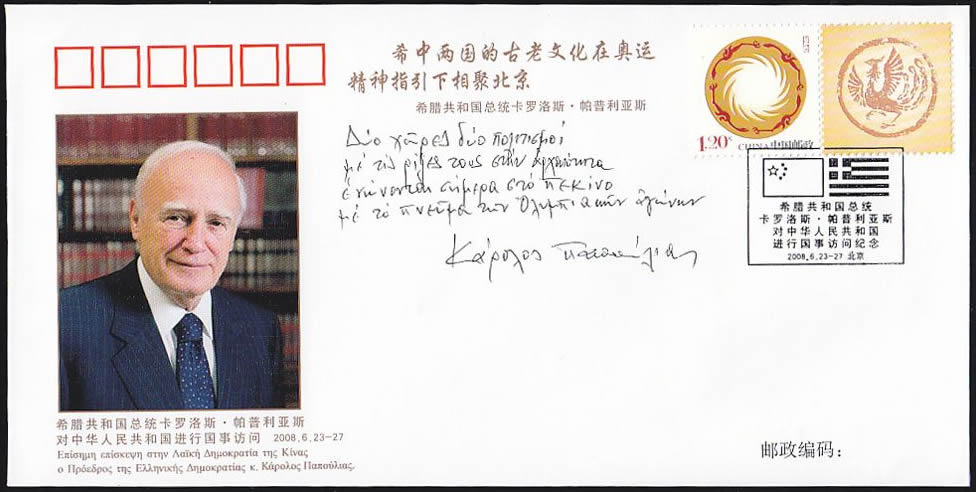 希中两国的古老文化在奥运
精神指引下相聚北京
希腊共和国总统卡罗洛斯·帕普利亚斯
Δύο χώρες δύο πολιτισμοί
με τις ρίζες τους στην αρχαιότητα
ενώνονται σήμερα στο Πεκίνο
με το πνεύμα των Ολυμπιακών αγώνων
Κάρολος Παπούλιας
1.20元
CHINA中国邮政
希腊共和国总统
卡罗洛斯·帕普利亚斯
对中华人民共和国
进行国事访问纪念
2008.6.23-27 北京
希腊共和国总统卡罗洛斯·帕普利亚斯
对中华人民共和国进行国事访问 2008.6.23-27
Επίσημη επίσκεψη στην Λαϊκή Δημοκρατία της Κίνας
ο Πρόεδρος της Ελληνικής Δημοκρατίας κ. Κάρολος Παπούλιας.
邮政编码：